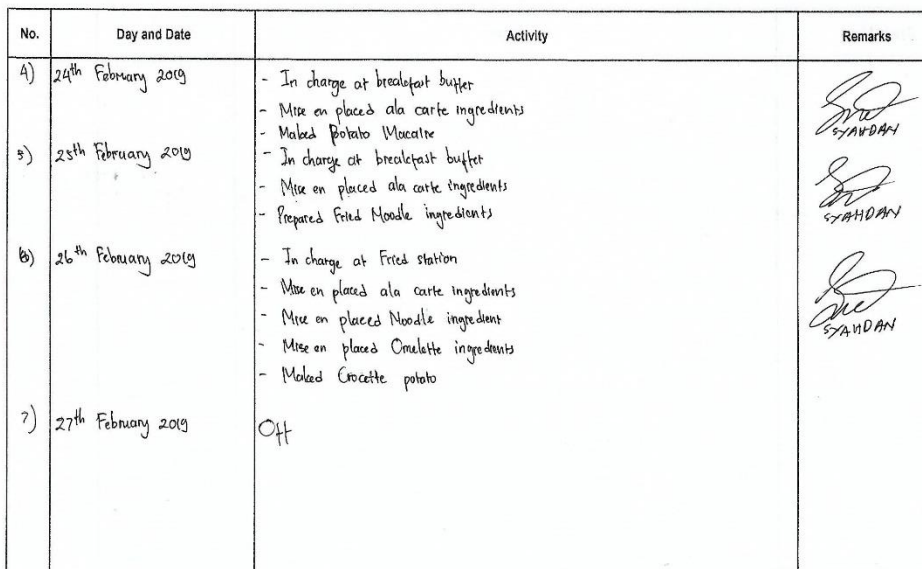 No. Day and Date Activity Remarks
4) 24th February 2019 - In charge at breakfast buffet
- Mise en placed ala carte ingredients
- Maked Potato Macaire
SYAHDAN
5) 25th February 2019 - In charge at breakfast buffet
- Mise en placed ala carte ingredients
- Prepared Fried Noodle ingredients
SYAHDAN
6) 26th February 2019 - In charge at Fried station
- Mise en placed ala carte ingredients
- Mise en placed Noodle ingredient
- Mise en placed Omelette ingredients
- Maked Crocette potato
SYAHDAN
7) 27th February 2019 Off